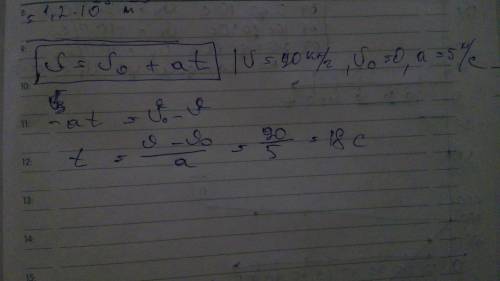 = 1,2·10 м
9.
υ = υ₀ + at | υ = 90 км/г, υ₀ = 0, a = 5 м/с
10.
11. -at = υ₀ - υ
12. t = υ - υ₀ / a = 90 / 5 = 18 с
13.
14.
15.